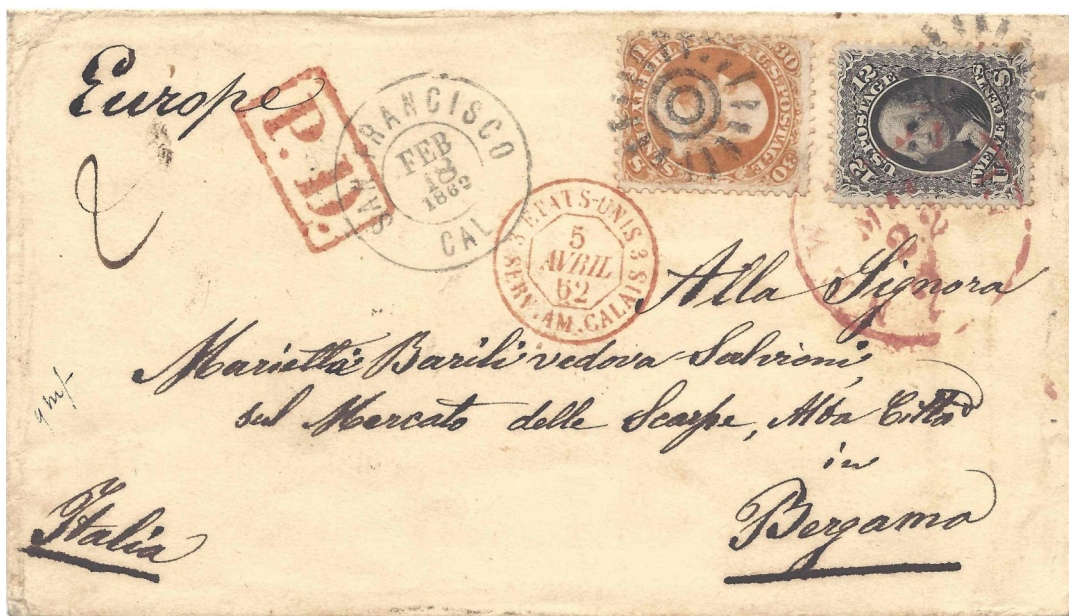 Europe
P.D.
SAN FRANCISCO
FEB
18
1862
CAL
3 ETATS-UNIS 3
5
AVRIL
62
SERV. AM. CALAIS
U.S. POSTAGE
30
30
12
U.S. POSTAGE
12
TWELVE CENTS
U
S
Alla Signora
Marietta Barili vedova Salvioni
sul Mercato delle Scarpe, Alta Città
in
Bergamo
Italia